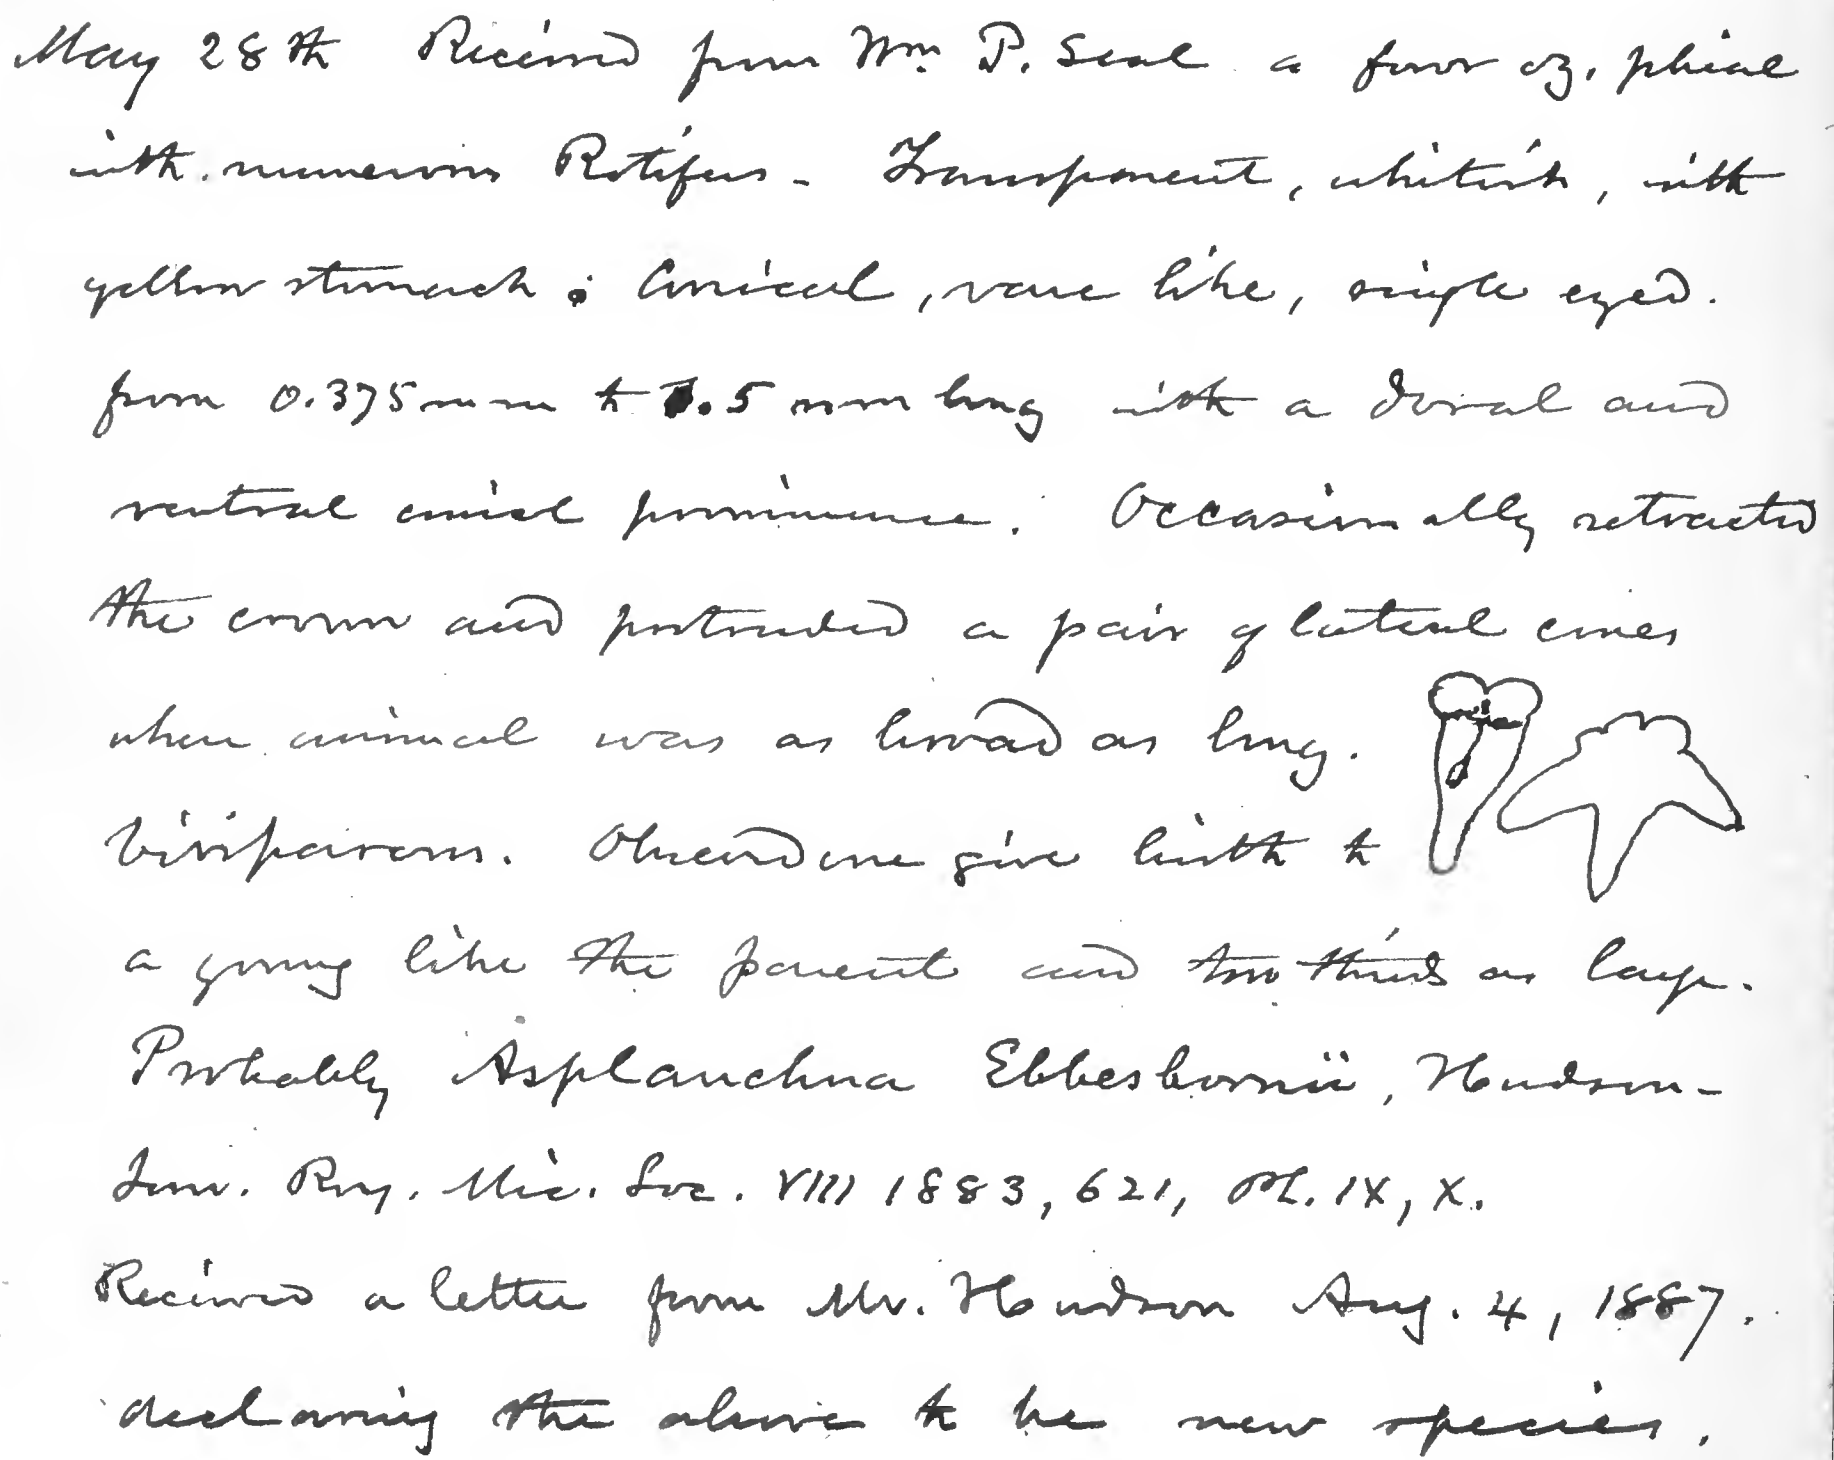 May 28th Received from Wm. P. Seal a four oz. phial
with numerous Rotifers - Transparent, whitish, with
yellow stomach; Conical, vase like, single eyed.
from 0.375 mm to 1.5 mm long with a dorsal and
ventral conical prominence. Occasionally retracted
the crown and protruded a pair of lateral cones
when animal was as broad as long.
Viviparous. Observed one give birth to
a young like the parent and two thirds as large.
Probably Asplanchna Ebbesbornii, Hudson-
Jour. Roy. Mic. Soc. VIII 1883, 621, Pl. IX, X.
Received a letter from Mr. Hudson Aug. 4, 1887.
declaring the above to be new species.